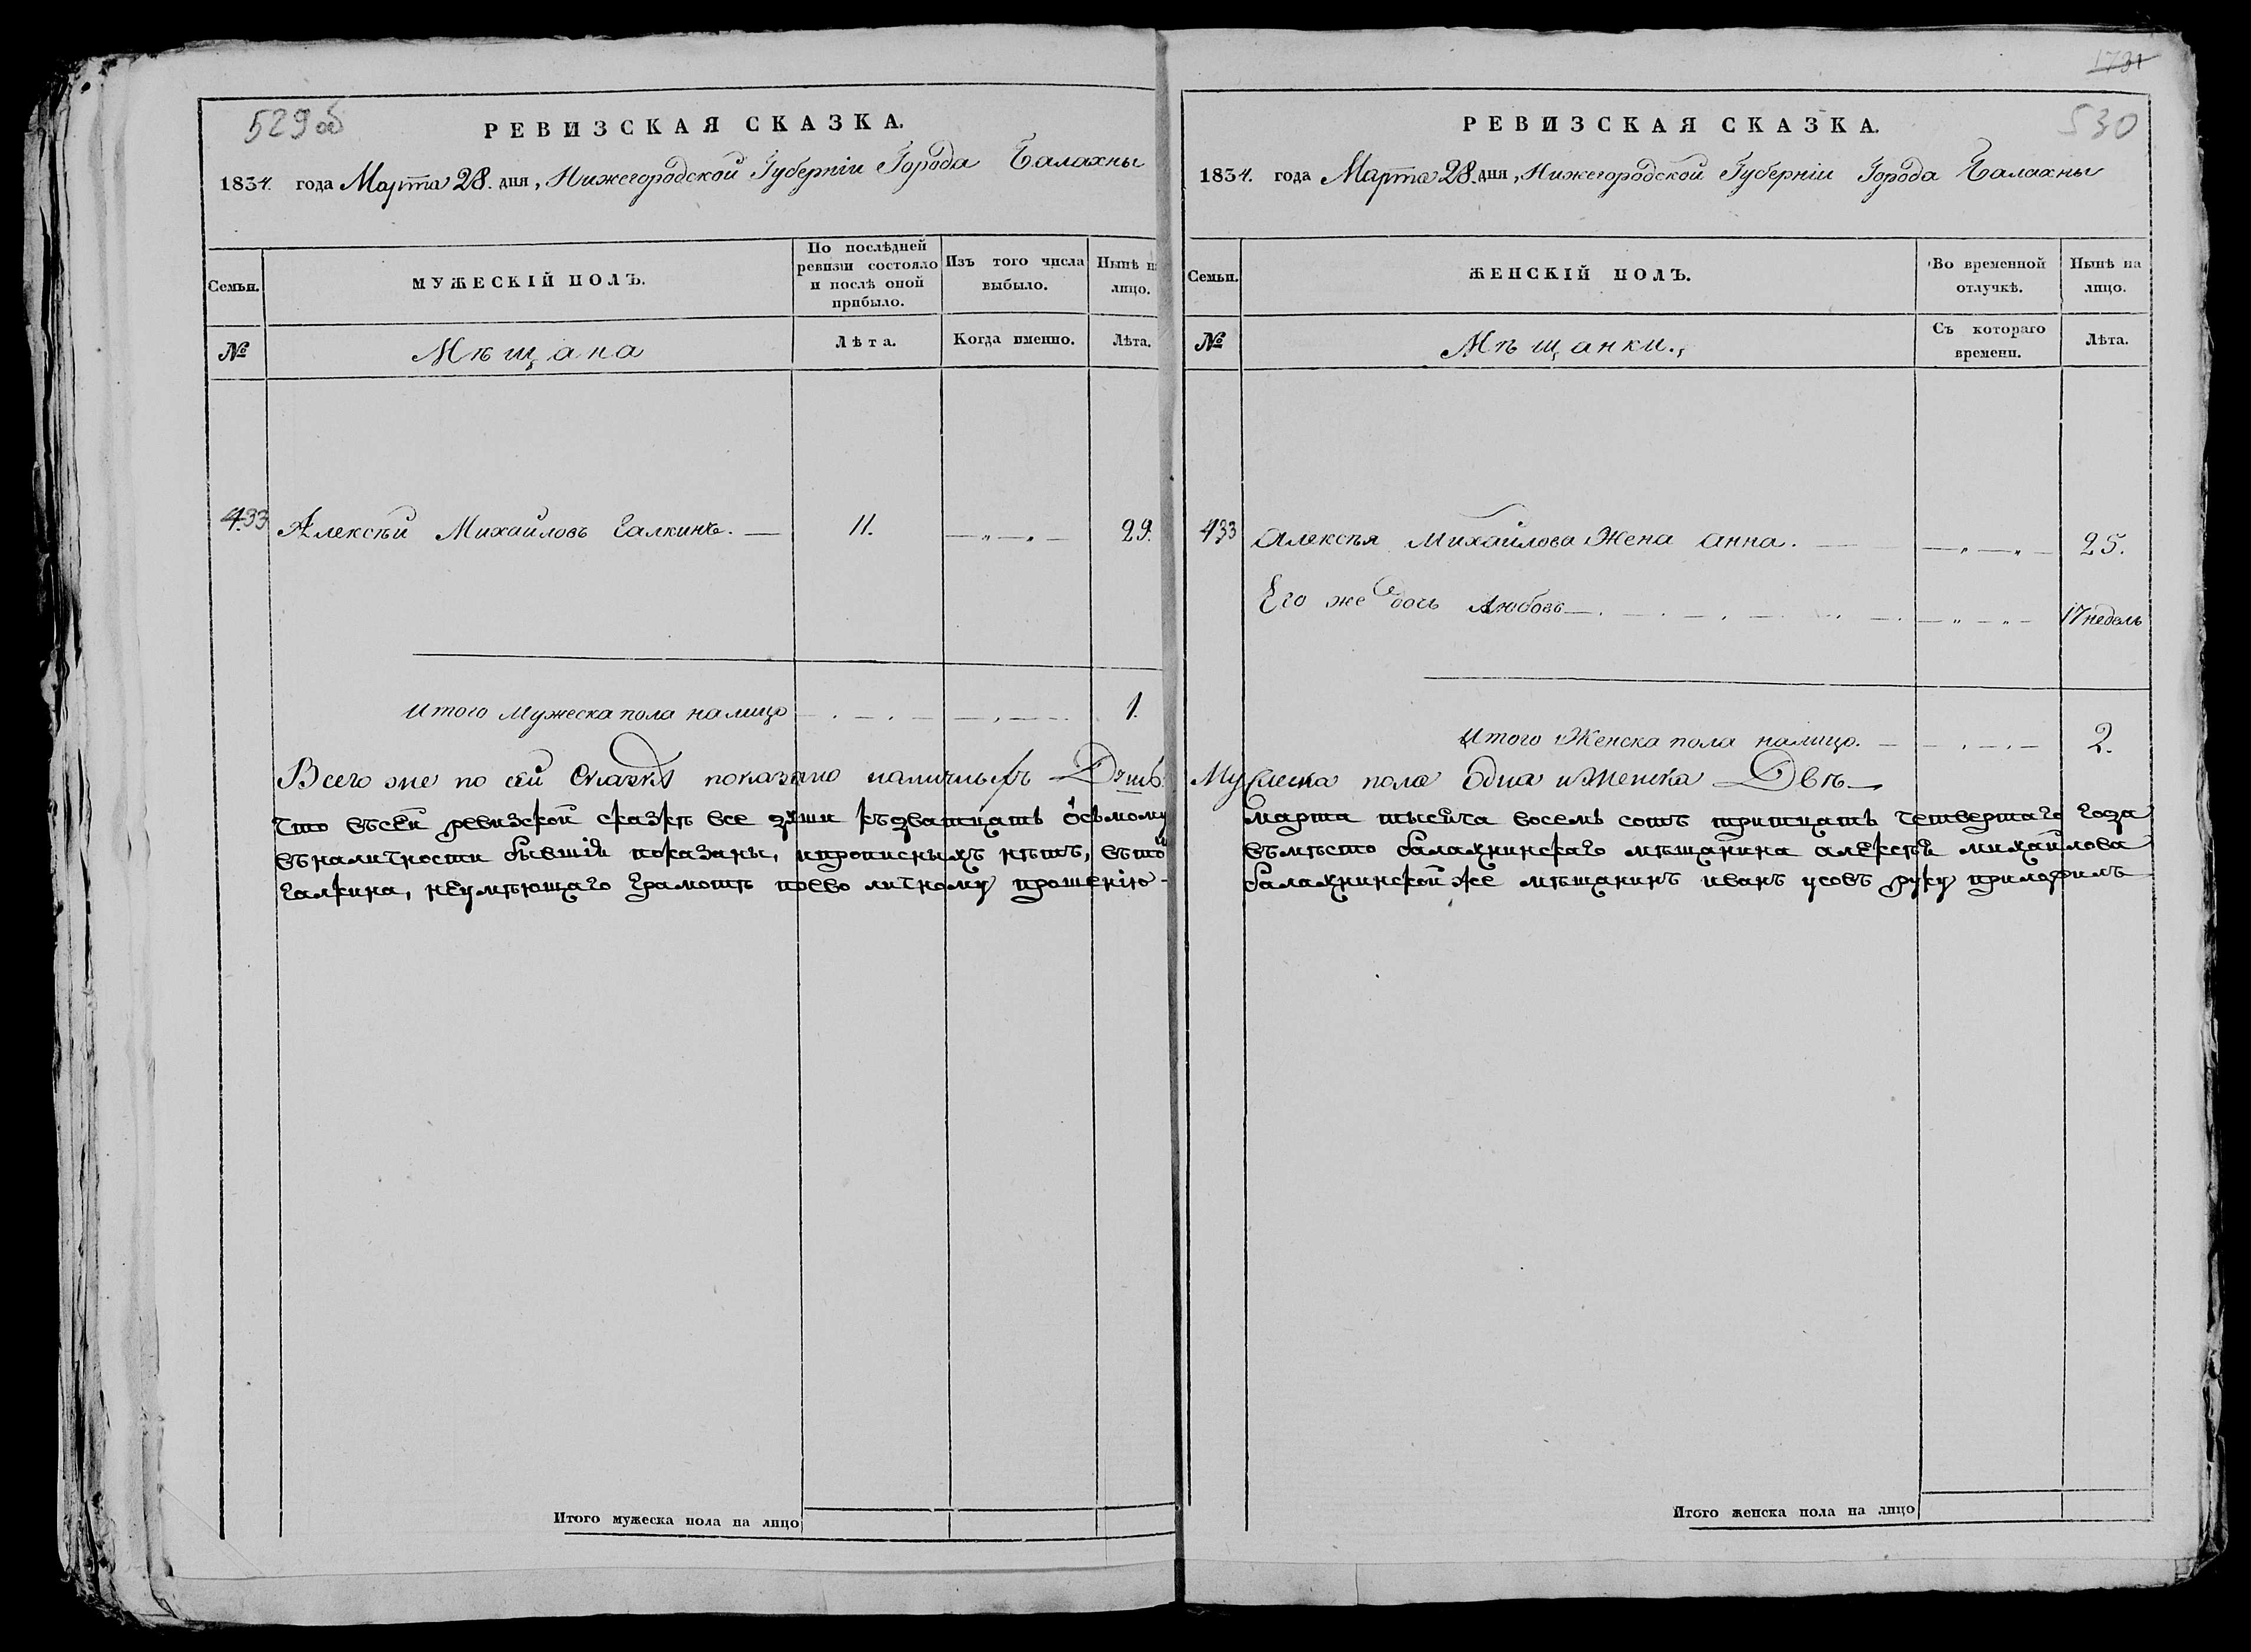 529 об
РЕВИЗСКАЯ СКАЗКА.
1834. года Марта 28. дня, Нижегородской Губерніи Города Балахны
Семьи.
МУЖЕСКІЙ ПОЛЪ.
По послѣдней ревизіи состояло и послѣ оной прибыло.
Изъ того числа выбыло.
Нынѣ на лицо.
№
Мѣщана
Лѣта.
Когда именно.
Лѣта.
433 Алексѣй Михайловъ Галкинъ. — 11. — „ — „ — 29.
Итого Мужеска пола налицо 1.
Всего же по сей Сказкѣ показано наличныхъ Душъ.
Что въсей ревизской сказкѣ все души къдватцать осьмому
въналичности бывшіи показаны, ипрописныхъ нѣтъ, вътой
Галкина, неумѣющаго грамотѣ поево личному прошенію -
Итого мужеска пола на лицо
1731
530
РЕВИЗСКАЯ СКАЗКА.
1834. года Марта 28. дня, Нижегородской Губерніи Города Балахны
Семьи.
ЖЕНСКІЙ ПОЛЪ.
Во временной отлучкѣ.
Нынѣ на лицо.
№
Мѣщанки.
Съ котораго времени.
Лѣта.
433 Алексѣя Михайлова Жена Анна. — „ — „ — 25.
Его же дочь Любовь — „ — „ — 17 недель
Итого Женска пола налицо. 2.
Мужеска пола Одна иженска Двѣ
марта тысяча восемь сотъ тритцать четвертаго года
вмѣсто балахнинскаго мѣщанина алексѣя михайлова
балахнинской же мѣщанинъ иванъ усовъ руку приложилъ
Итого женска пола на лицо